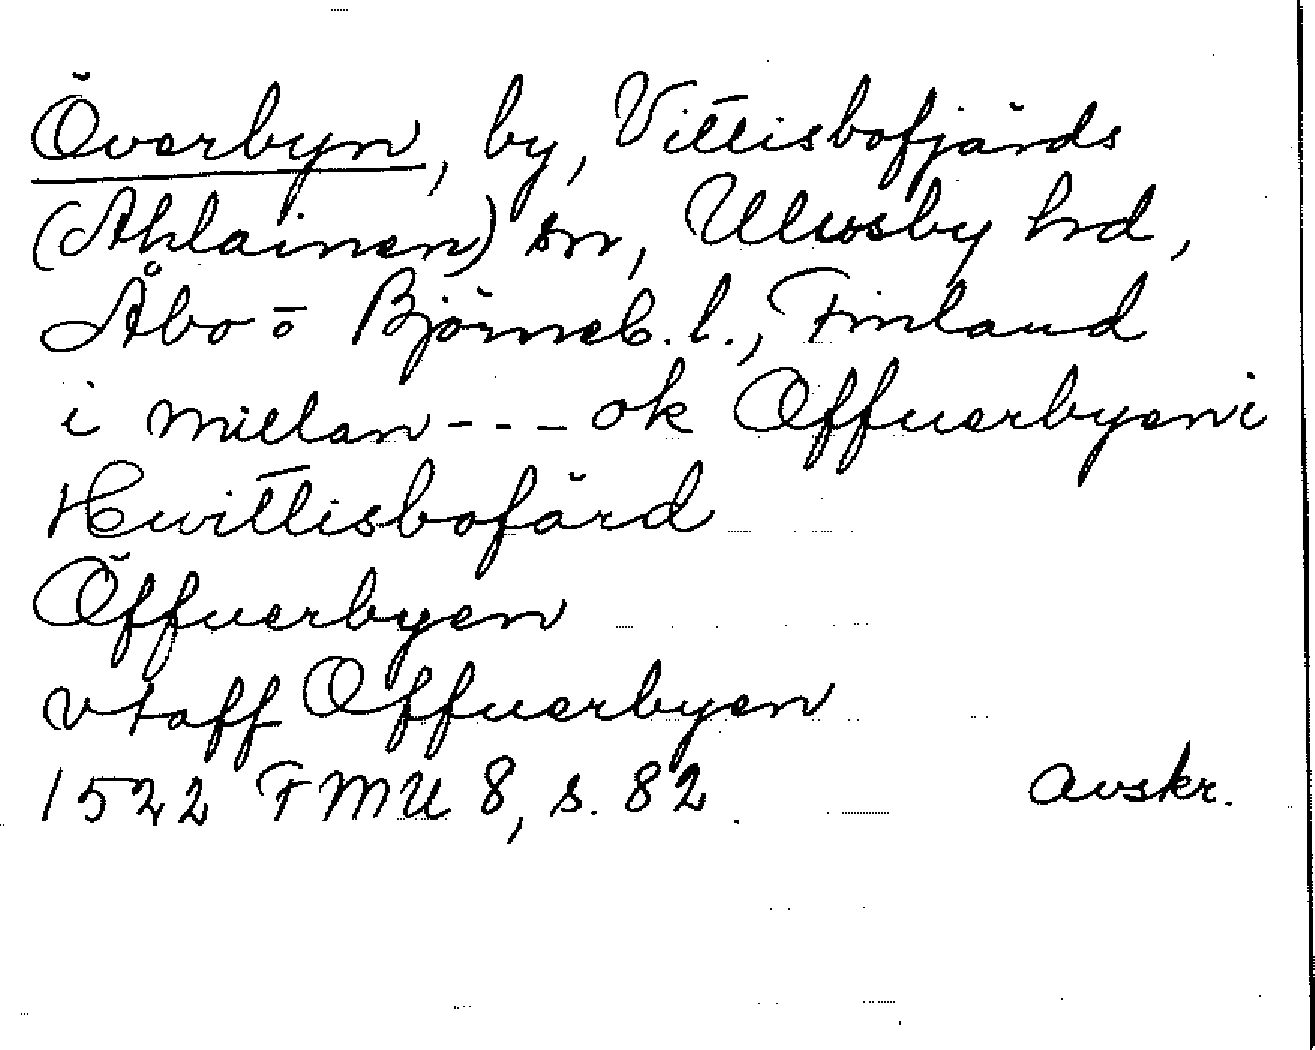 Överbyn, by, Vittisbofjärds
(Ahlainen) sn, Ulvsby hrd,
Åbo o Björneb. l., Finland
i millan --- ok Offuerbyen i
Hwittisbofärd
Öffuerbyen
vtaff Offuerbyen
1522 FMU 8, s. 82. avskr.